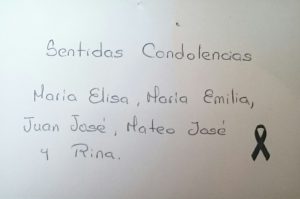 Sentidas Condolencias
Maria Elisa, Maria Emilia,
Juan José, Mateo José
y Rina.